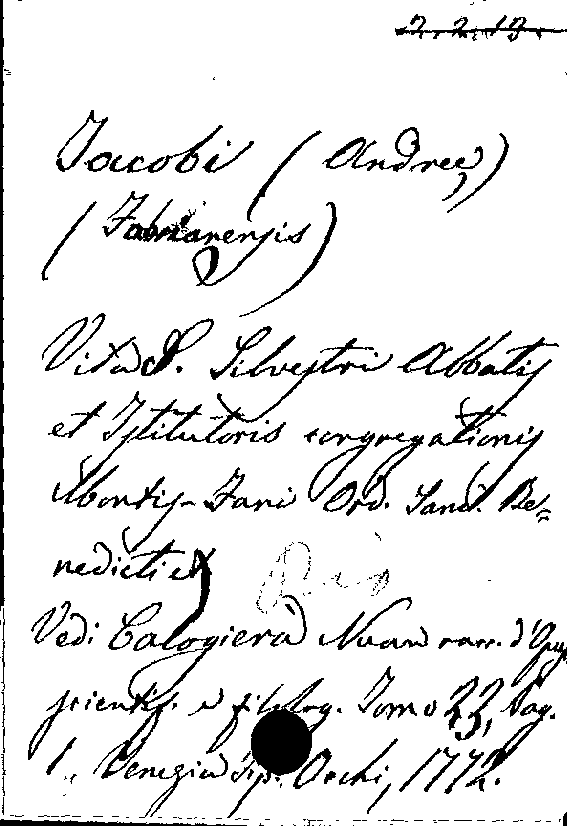 2. 2. 13.
Jacobi (Andreę)
(Fabrianensis)
Vita S. Silvestri Abbatis
et Istitutoris congregationis
Montis-Fani Ord. Sanct. Be=
nedicti etc
Vedi Calogierà Nuova racc. d'Opus
scientif. e filolog. Tomo 23, Pag.
1., Venezia Tip. Occhi, 1772.